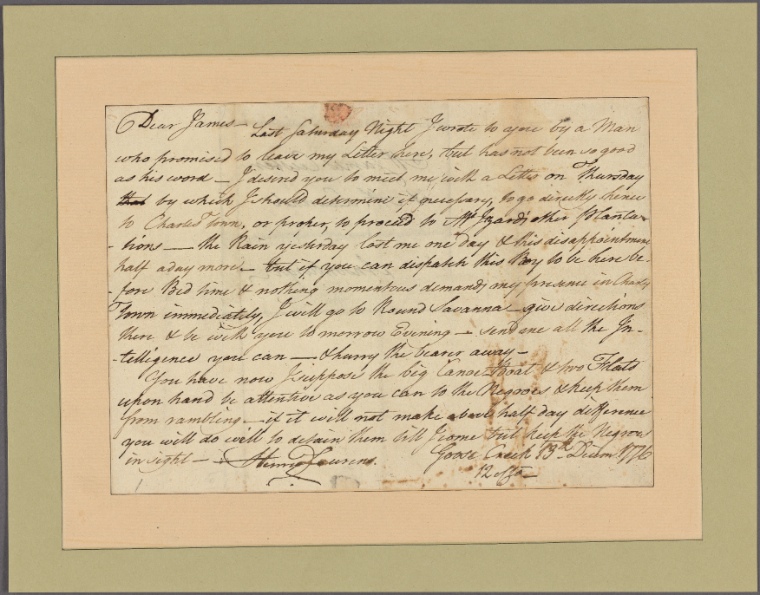 Dear James – Last Saturday Night I wrote to you by a Man
who promised to leave my Letter here, but has not been so good
as his word – I desired you to meet me with a Letter on Thursday
by which I should determine if necessary, to go directly hence
to Charles Town, or proper, to proceed to Mr. Izards other Planta-
-tions — the Rain yesterday lost me one day & this disappointment
half a day more – but if you can dispatch this Boy to be here be-
-fore Bed time & nothing momentous demands my presence in Charles
Town immediately, I will go to Round Savanna – give directions
there & be with you to morrow Evening – send me all the In-
-telligence you can — & hurry the bearer away –
You have now I suppose the big Canoe Boat & two Flats
upon hand be attentive as you can to the Negroes & keep them
from rambling – if it will not make above half day difference
you will do well to detain them till I come but keep the Negroes
in sight – Henry Laurens.
Goose Creek 1776
12 oClo